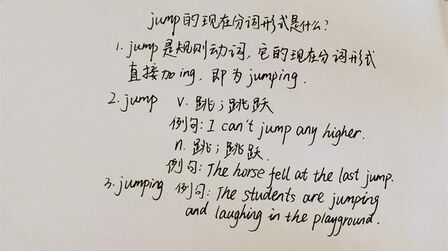 jump的现在分词形式是什么?
1. jump是规则动词,它的现在分词形式
直接加ing,即为jumping.
2. jump v. 跳;跳跃
例句: I can't jump any higher.
n. 跳;跳跃.
例句: The horse fell at the last jump.
3. jumping 例句: The students are jumping
and laughing in the playground.